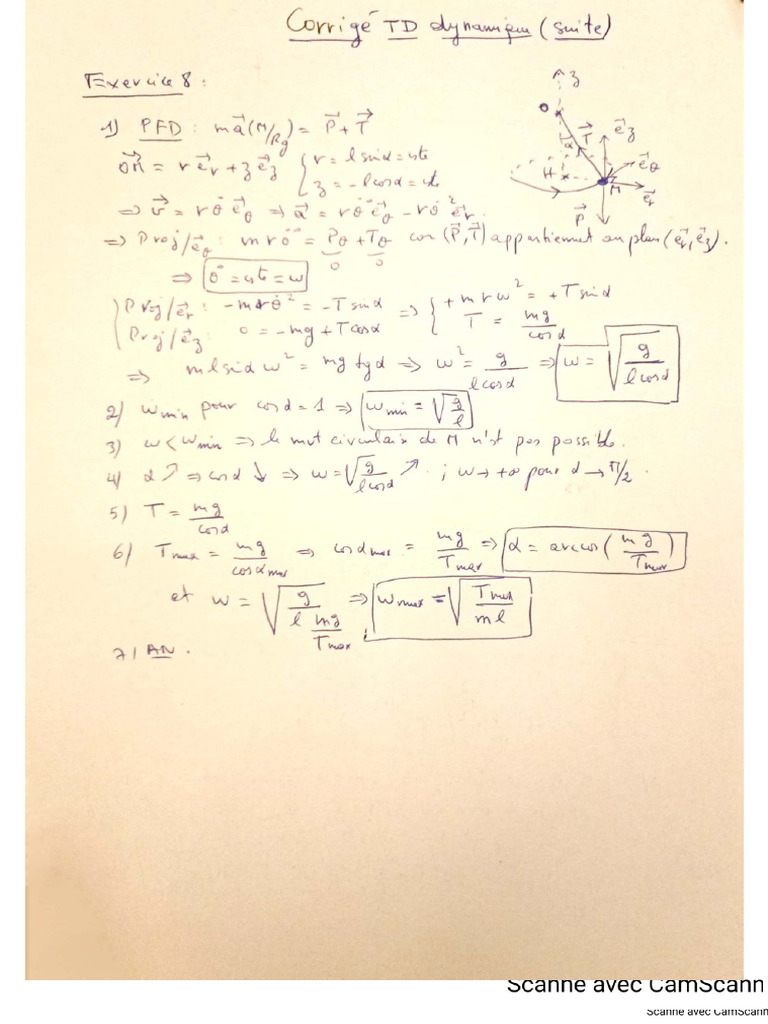 Corrigé TD dynamique (suite)
Exercice 8 :
1) PFD : m a⃗(M/Rg) = P⃗ + T⃗
OM⃗ = r e⃗r + z e⃗z { r = l sinα = cste
z = -l cosα = cste
⇒ v⃗ = r θ̇ e⃗θ ⇒ a⃗ = r θ̈ e⃗θ - r θ̇² e⃗r
⇒ Proj/e⃗θ : m r θ̈ = Pθ + Tθ car (P⃗, T⃗) appartiennent au plan (e⃗r, e⃗z).
0 0
⇒ θ̇ = cste = ω
{ Proj/e⃗r : -m r θ̇² = -T sinα ⇒ { + m r ω² = + T sinα
Proj/e⃗z : 0 = -mg + T cosα T = mg/cosα
⇒ m l sinα ω² = mg tgα ⇒ ω² = g/(l cosα) ⇒ ω = √(g/(l cosα))
2) ωmin pour cosα = 1 ⇒ ωmin = √(g/l)
3) ω < ωmin ⇒ le mvt circulaire de M n'est pas possible.
4) α ↗ ⇒ cosα ↘ ⇒ ω = √(g/(l cosα)) ↗ ; ω → +∞ pour α → π/2.
5) T = mg/cosα
6) Tmax = mg/cosαmax ⇒ cosαmax = mg/Tmax ⇒ α = arccos(mg/Tmax)
et ω = √(g/(l mg/Tmax)) ⇒ ωmax = √(Tmax/(ml))
7) AN.
z
O
α
T⃗
e⃗z
e⃗θ
H
M
e⃗r
P⃗
Scanné avec CamScann
Scanné avec CamScann